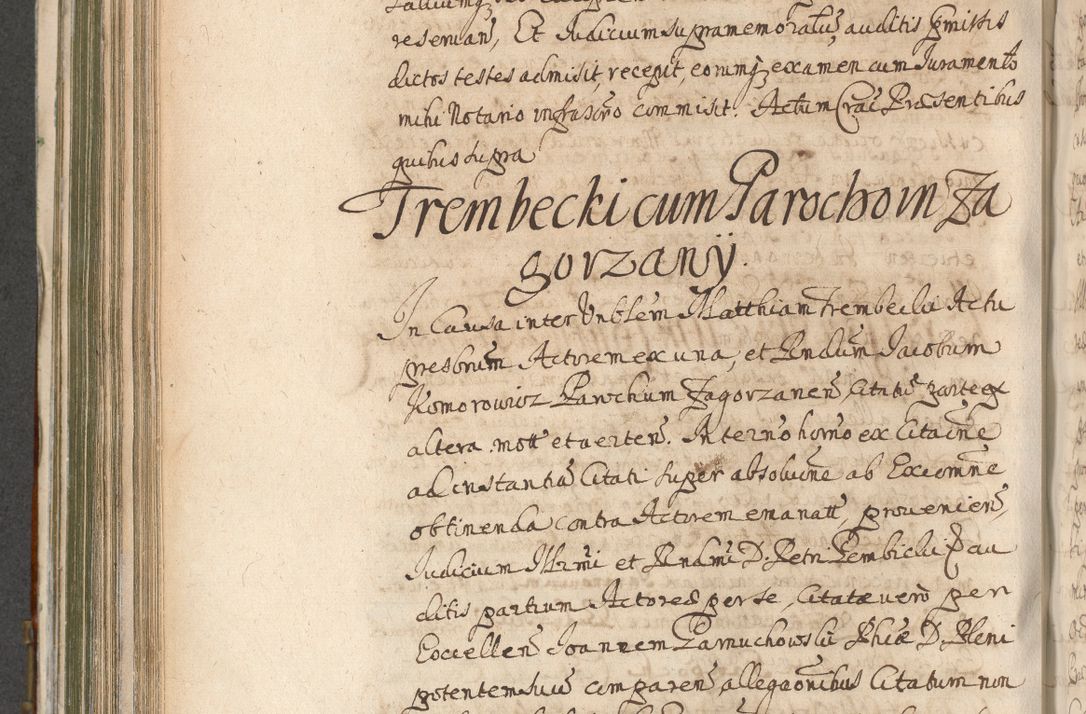 reservan, Et Judicium supramemoratu, auditis pmissis
dictos testes admisit, recepit, eorumq examen cum Juramento
mihi Notario infrascro commisit. Actum Crac Præsentibus
quibus supra
Trembecki cum Parocho in Za
gorzany.
In Causa inter Vnblem Matthiam Trembecki Actu
presbrum Actorem ex una, et Rndum Jacobum
Komorowicz Parochum Zagorzanen Citatu parte ex
altera mott et aerten. In termno horno ex Citaone
ad instantia Citati super absolune ab Excomne
obtinenda contra Actorem emanatt, provenien,
Judicium Illrmi et Rndmi D. Petri Gembicki P au
ditis partium Actorea per se, Citatæ vero per
Excellen Joannem Parnuchowski Phiæ D. Pleni
potentem suu comparen allegaonibus Citatum non